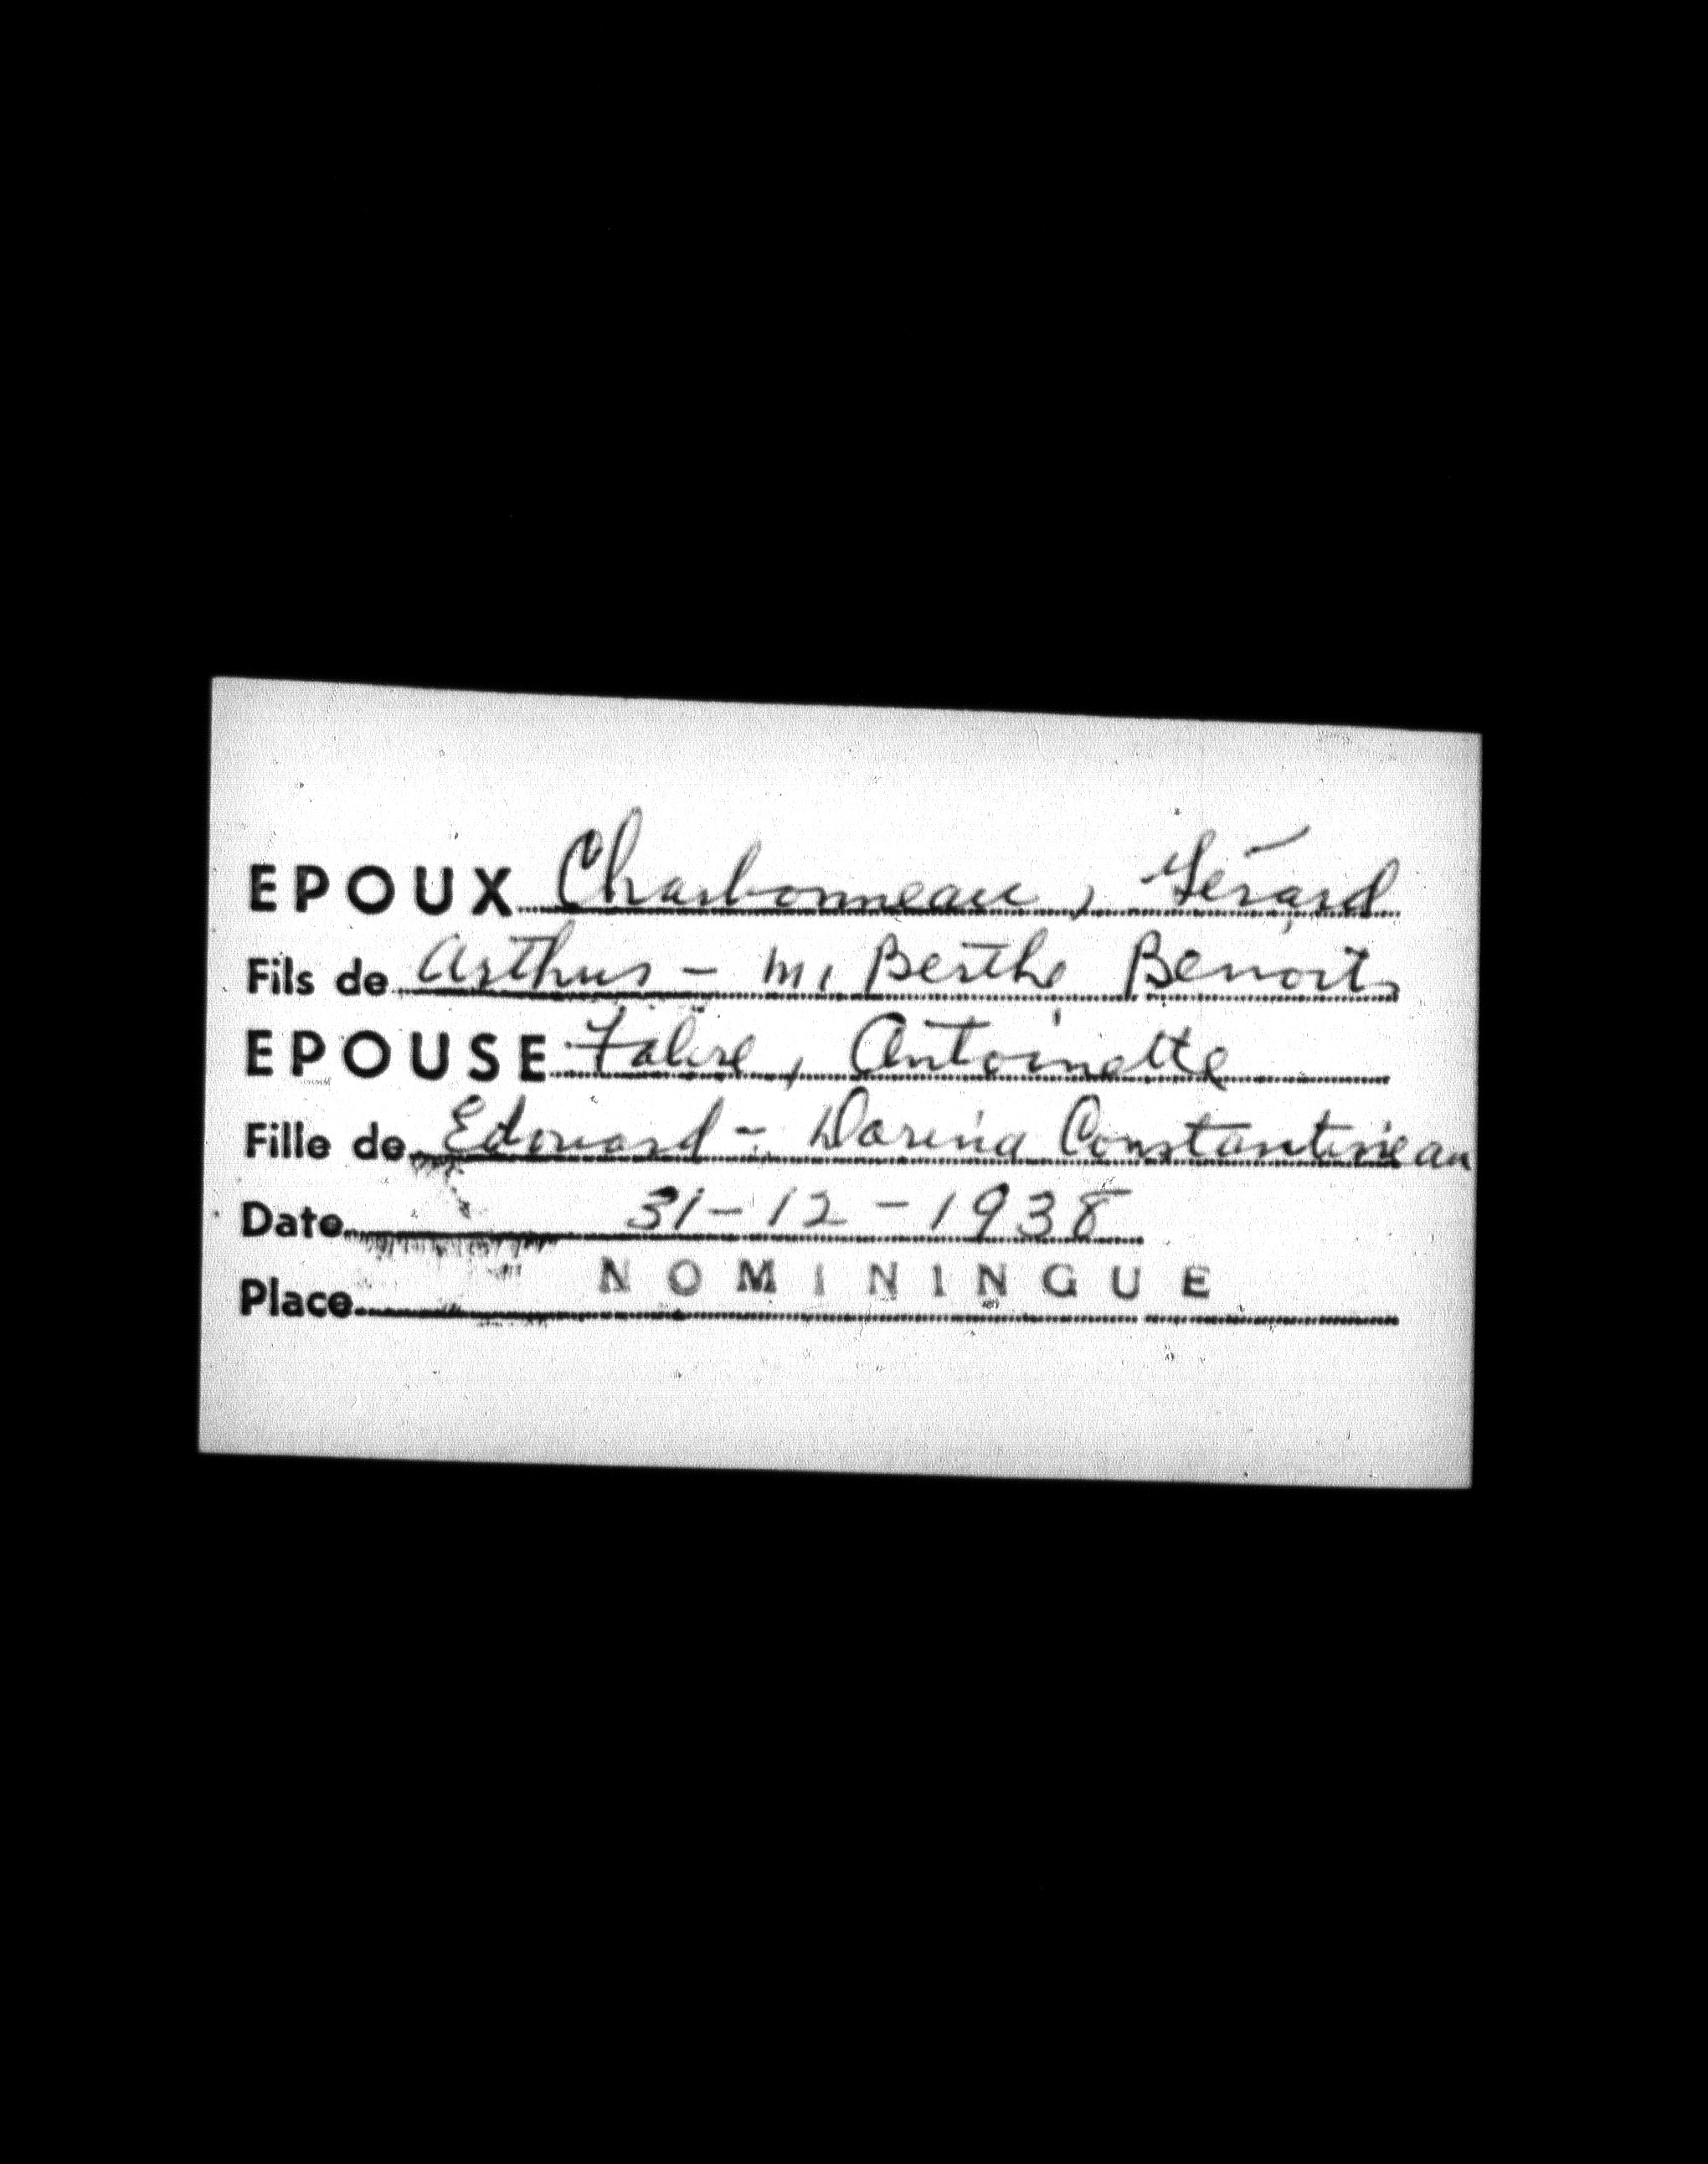 EPOUX Charbonneau, Gérard
Fils de Arthur - M. Berthe Benoit
EPOUSE Fabre, Antoinette
Fille de Edouard - Dorina Constantineau
Date 31-12-1938
Place NOMININGUE